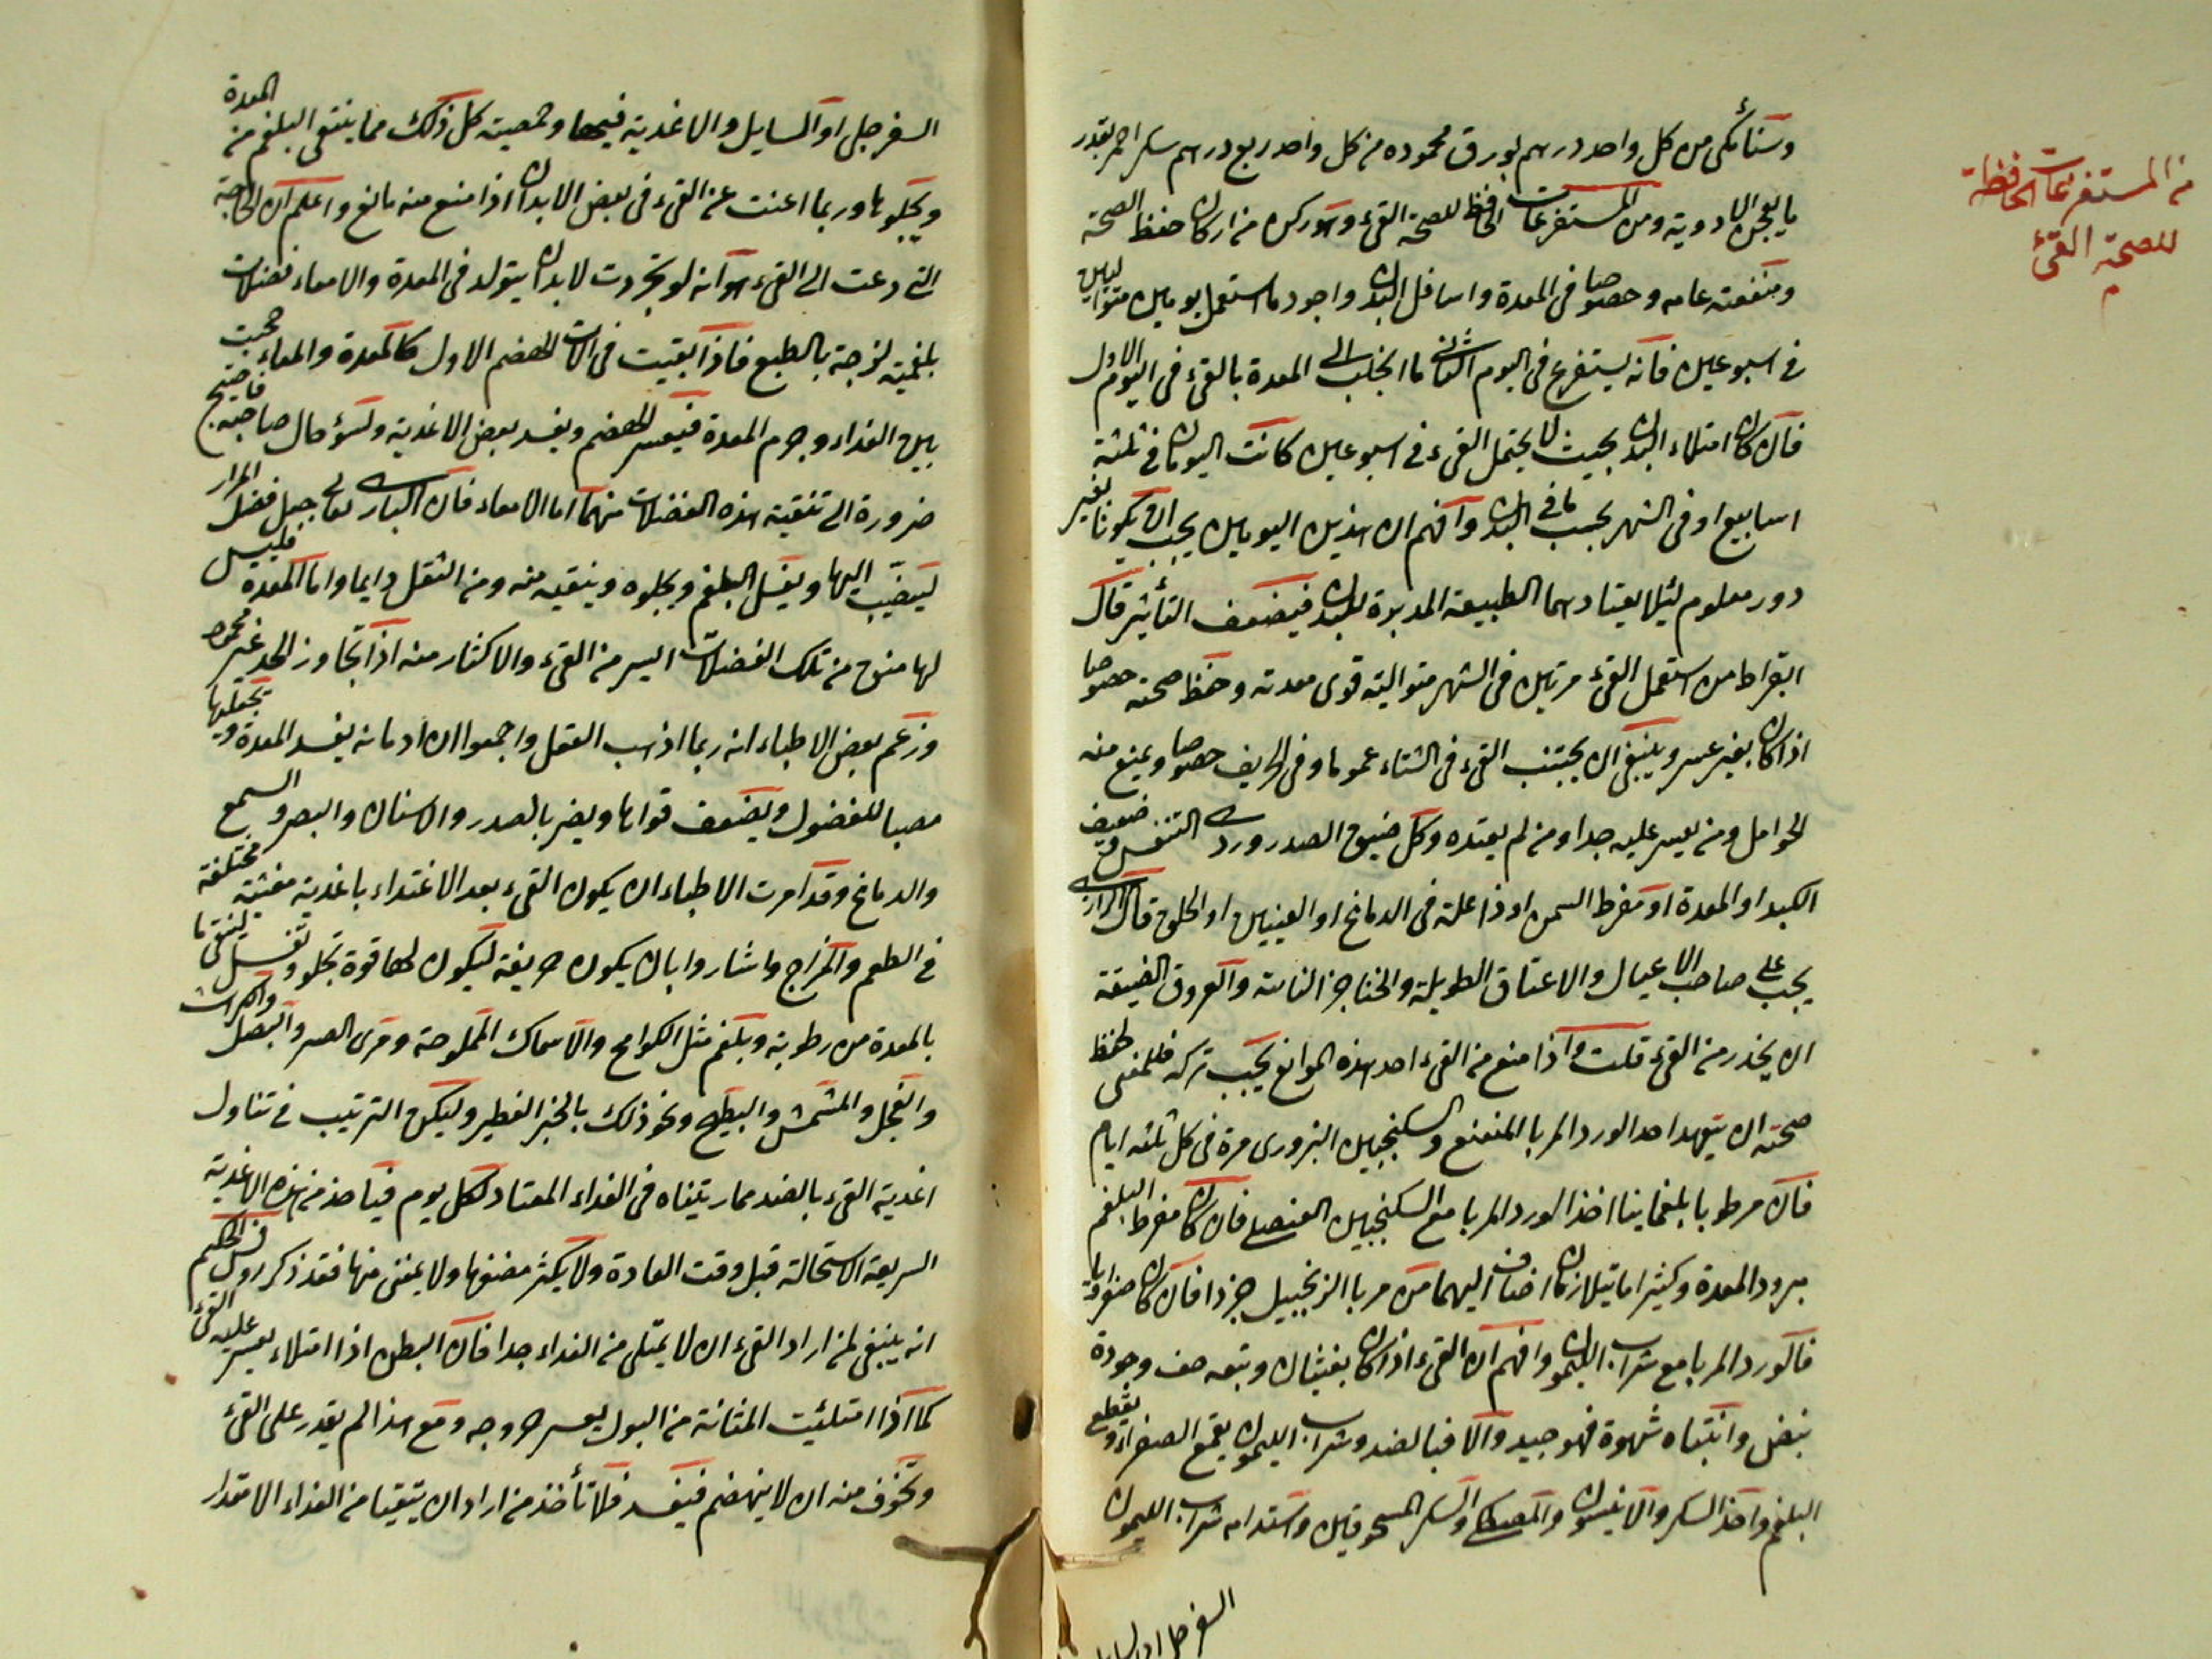 وسنامكى من كل واحد درهم بورق محموده من كل واحد ربع درهم سكر احمر بقدر
ما يعجن الادوية ومن المستفرغات الحافظة للصحة القىء وهو ركن من اركان حفظ الصحة
من المستفرغات الحافظة
للصحة القىء
ومنفعته عامه وخصوصا فى المعدة واسافل البدن واجود ما استعمل يومين متواليين
فى اسبوعين فانه يستفرغ فى اليوم الثانى ما انجلب الى المعدة بالقىء فى اليوم الاول
فان كان امتلاء البدن بحيث لا يحتمل القىء فى اسبوعين كانت اليومان فى ثلثة
اسابيع او فى الشهر بحسب ما فى البدن وافهم ان هذين اليومين يجب ان يكونا بغير
دور معلوم لئلا يعتادهما الطبيعة المدبرة للبدن فيضعف التأثير قال
ابقراط من استعمل القىء مرتين فى الشهر متوالية قوى معدته وحفظ صحته خصوصا
اذا كان بغير عسر وينبغى ان يجتنب القىء فى الشتاء عموما وفى الخريف خصوصا ويمنع منه
الحوامل ومن يعسر عليه جدا ومن لم يعتده وكل ضيق الصدر وردى التنفس وضعيف
الكبد او المعدة او مفرط السمن او ذا علة فى الدماغ او العينين او الحلق قال الرازى
يجب على صاحب الاعيال والاعناق الطويلة والحناجر الناتئة والعروق الضيقة
ان يحذر من القىء قلت واذا منع من القىء احد هذه الموانع يجب تركه فللمعنى لحفظ
صحته ان يتعهد احد الورد المربا المنعنع والسكنجبين البزورى مرة فى كل ثلثة ايام
فان مرطوبا بلغمانيا اخذ الورد المربا مع السكنجبين العنصلى فان كان مفرط البلغم
مبرود المعدة وكثيرا ما يتلازمان اضاف اليهما من مربا الزنجبيل جزءا فان كان صفراويا
فالورد المربا مع شراب الليمون وافهم ان القىء اذا كان بغثيان وتبعه خف وجودة
نبض وانتباه شهوة فهو جيد والا فبالضد وشراب الليمون يقمع الصفراء ويقطع
البلغم واخذ السكر والانيسون والمصطكى والسكر المسحوقين واستدامه شراب الليمون
السفرجل او السايل
السفرجلى او السايل والاغذية فيهما وحمصيته كل ذلك مما ينقى البلغم من المعدة
ويجلوها وربما اغنت عن القىء فى بعض الابدان اذا منع منه مانع واعلم ان الحاجة
التى دعت الى القىء هو انه لو تجردت لا بد ان يتولد فى المعدة والامعاء فضلات
بلغمية لزجة بالطبع فاذا بقيت فى الات الهضم الاول كالمعدة والمعاء حجبت
بين الغذاء وجرم المعدة فيعسر الهضم ويفسد بعض الاغذية ولسؤ حال صاحبه فاحتيج
ضرورة الى تنقية هذه الفضلات منهما اما الامعاء فان البارى تعالى جعل فضل المرار
لينصب اليها ويغسل البلغم ويجلوه وينقيه منه ومن الثفل دايما واما المعدة فليس
لها منق من تلك الفضلات اليسر من القىء والاكثار منه اذا تجاوز الحد غير محمود
وزعم بعض الاطباء انه ربما اذهب العقل واجمعوا ان ادمانه يفسد المعدة ويجعلها
مصبا للفضول ويضعف قواها ويضر بالصدر والاسنان والبصر والسمع
والدماغ وقد امرت الاطباء ان يكون القىء بعد الاغتذاء باغذية مغثية مختلفة
فى الطعم والمزاج واشاروا بان يكون حريفة ليكون لها قوة تجلو وتغسل لينقى ما
بالمعدة من رطوبة وبلغم مثل الكوامخ والاسماك المملوحة ومرى الصر والبصل والكراث
والفجل والمشمش والبطيخ ونحو ذلك بالخبز الفطير وليكن الترتيب فى تناول
اغذية القىء بالضد مما رتبناه فى الغذاء المعتاد لكل يوم فياخذ من هذه الاغذية
السريعة الاستحالة قبل وقت العادة ولا يكثر مضغها ولا يمعن منها فقد ذكر روفس الحكيم
انه ينبغى لمن اراد القىء ان لا يمتلى من الغذاء جدا فان البطن اذا امتلاء يعسر عليه القىء
كما اذا امتلئت المثانة من البول يعسر خروجه ومع هذا لم يقدر على القىء
وتخوف منه ان لا ينهضم فيفسد فلا تأخذ من اراد ان يتقيا من الغذاء الا مقدار